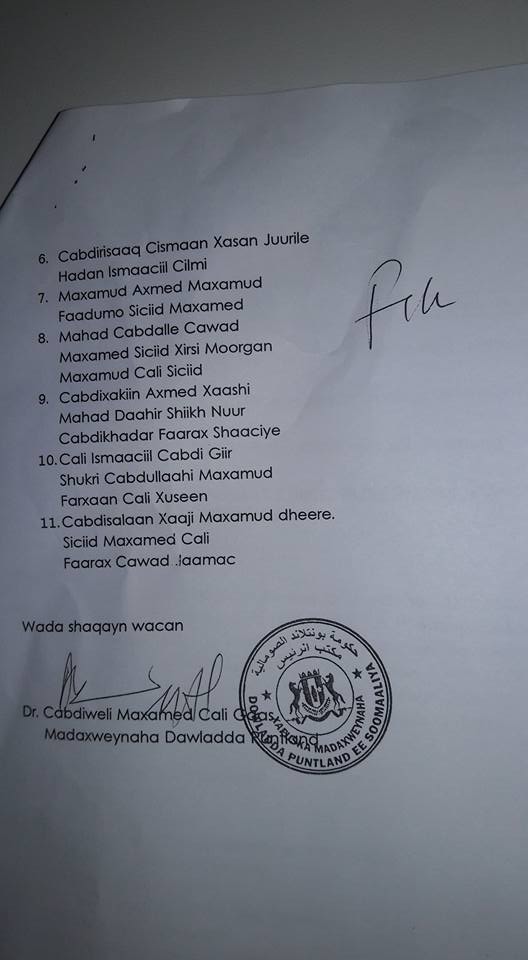 6. Cabdirisaaq Cismaan Xasan Juurile
Hadan Ismaaciil Cilmi
7. Maxamud Axmed Maxamud
Faadumo Siciid Maxamed
8. Mahad Cabdalle Cawad
Maxamed Siciid Xirsi Moorgan
Maxamud Cali Siciid
9. Cabdixakiin Axmed Xaashi
Mahad Daahir Shiikh Nuur
Cabdikhadar Faarax Shaaciye
10. Cali Ismaaciil Cabdi Giir
Shukri Cabdullaahi Maxamud
Farxaan Cali Xuseen
11. Cabdisalaan Xaaji Maxamud dheere.
Siciid Maxamed Cali
Faarax Cawad Jaamac
Wada shaqayn wacan
Dr. Cabdiweli Maxamed Cali Gaas
Madaxweynaha Dawladda Puntland
حكومة بونتلاند الصومالية
مكتب الرئيس
XAFIISKA MADAXWEYNAHA
DOWLADDA PUNTLAND EE SOOMAALIYA